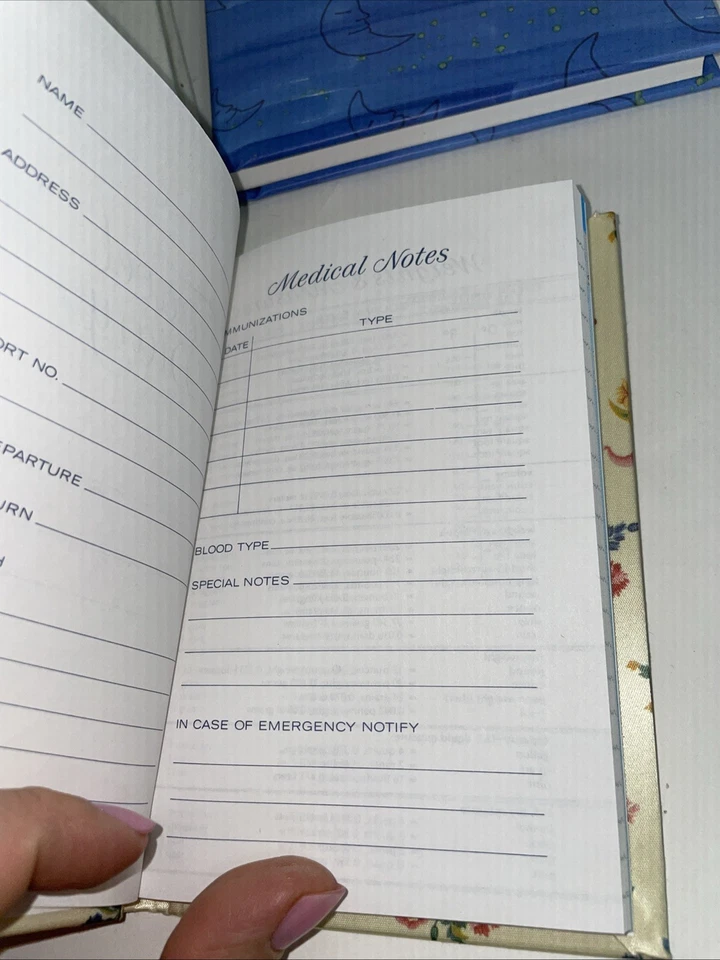 NAME
ADDRESS
ORT NO.
EPARTURE
URN
Medical Notes
MMUNIZATIONS
DATE TYPE
BLOOD TYPE
SPECIAL NOTES
IN CASE OF EMERGENCY NOTIFY